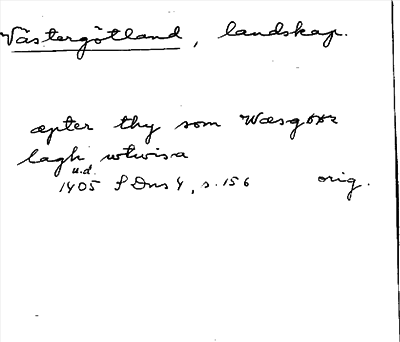 Västergötland, landskap.
æpter thy som Wæsgøtz
lagh wtwisa
u.d.
1405 SDns 4, s. 156 orig.